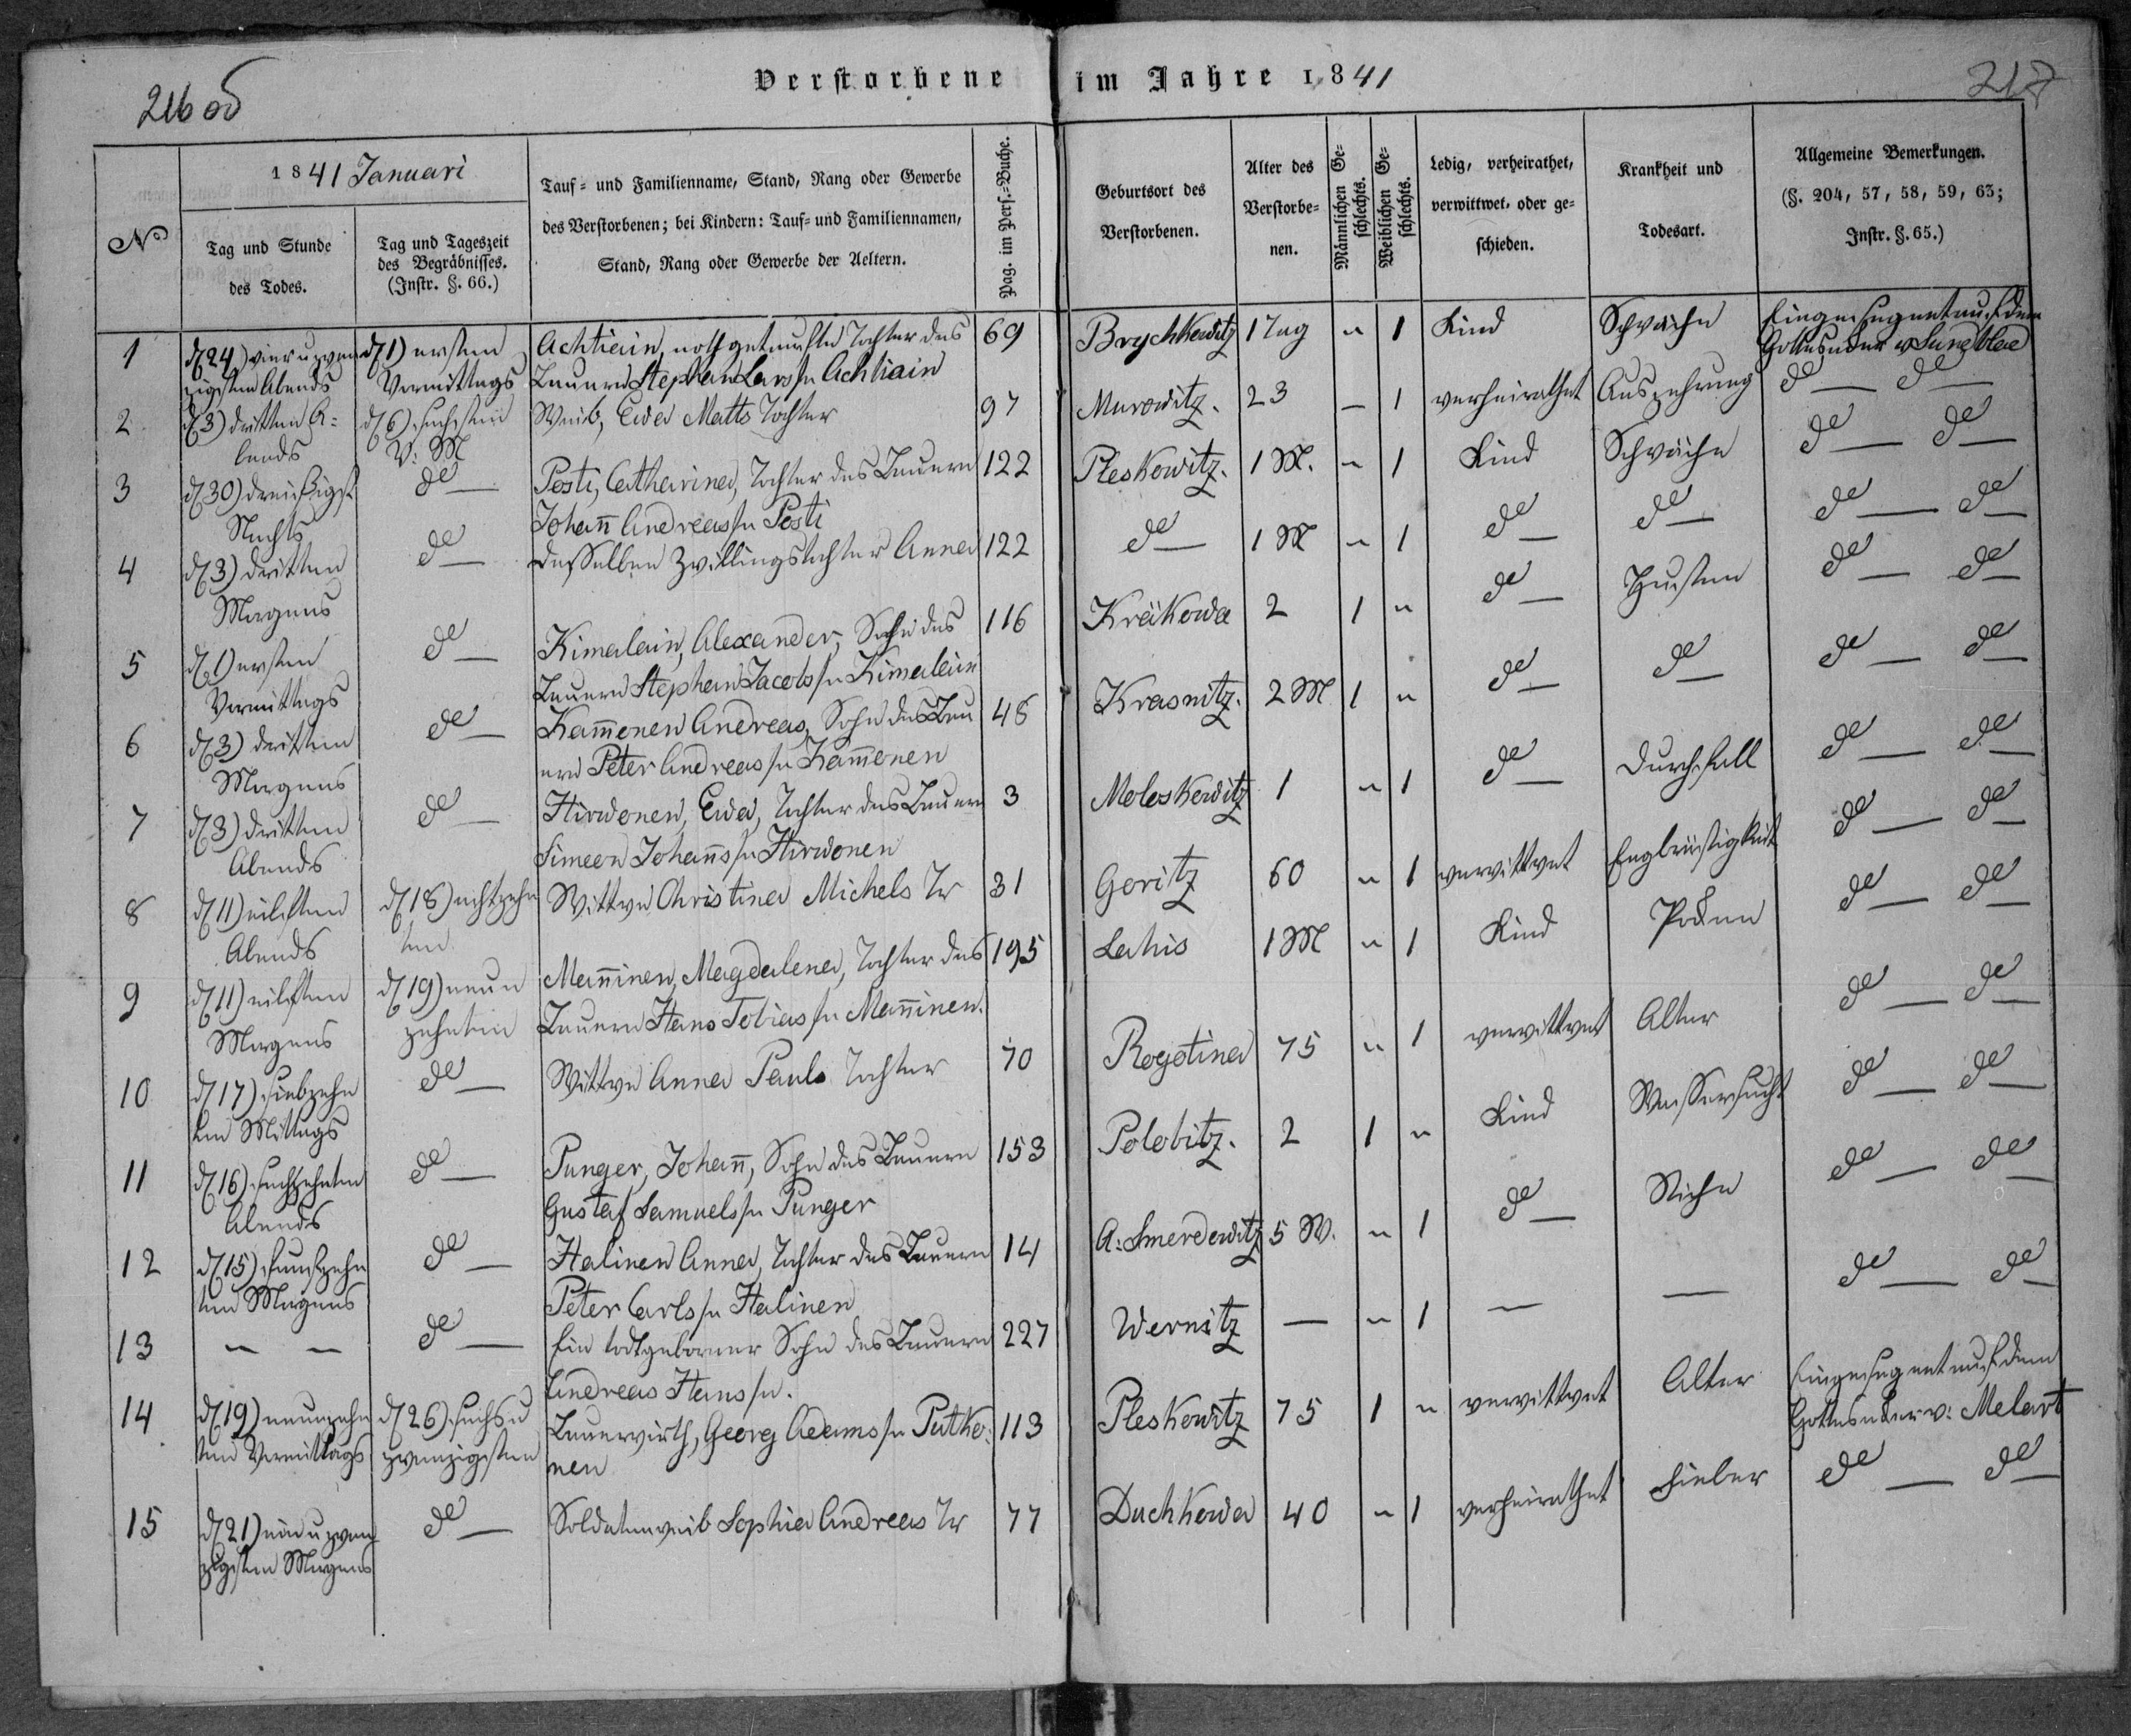 216 об
217
Verstorbene im Jahre 1841
No
1841 Januari
Tag und Stunde
des Todes.
Tag und Tageszeit
des Begräbnisses.
(Instr. §. 66.)
Tauf- und Familienname, Stand, Rang oder Gewerbe
des Verstorbenen; bei Kindern: Tauf- und Familiennamen,
Stand, Rang oder Gewerbe der Aeltern.
Pag. im Pers.-Buche.
Geburtsort des
Verstorbenen.
Alter des
Verstorbe-
nen.
Männlichen Ge-
schlechts.
Weiblichen Ge-
schlechts.
Ledig, verheirathet,
verwittwet, oder ge-
schieden.
Krankheit und
Todesart.
Allgemeine Bemerkungen.
(§. 204, 57, 58, 59, 63;
Instr. §. 65.)
1 d. 24) vier u zwan d. 1) ersten Achtiain, nothgetaufte Tochter des 69 Brychkowitz 1 Tag " 1 Kind Schwäche Eingesegnet auf dem
zigsten Abends Vormittags Bauern Stephan Lars sn Achtiain Gottesacker v Lundblad
2 d. 3) dritten A- d. 6) sechsten Weib, Eva Matts Tochter 97 Murowitz. 23 — 1 verheirathet Auszehrung do — do —
bends V: M
3 d. 30) dreißigst do — Posti, Catharina, Tochter des Bauern 122 Pleskowitz. 1 M. " 1 Kind Schwäche do — do —
Nachts Johann Andreas sn Posti
4 d. 3) dritten do — desselben Zwillingstochter Anna 122 do — 1 M " 1 do — do — do — do —
Morgens
5 d. 1) ersten do — Kimalain, Alexander, Sohn des 116 Kräkowa 2 1 " do — Husten do — do —
Vormittags Bauern Stephan Jacobs sn Kimalain
6 d. 3) dritten do — Kammonen Andreas, Sohn des Bau 48 Krasnitz. 2 M 1 " do — do — do — do —
Morgens ern Peter Andreas sn Kammonen
7 d. 3) dritten do — Hirwonen, Ewa, Tochter des Bauern 3 Moloskowitz 1 " 1 do — Durchfall do — do —
Abends Simeon Johanns sn Hirwonen
8 d. 11) eilften d. 18) achtzehn Wittwe Christina Michels Tr 31 Goritz 60 " 1 verwittwet Engbrüstigkeit do — do —
Abends ten
9 d. 11) eilften d. 19) neun Manninen, Magdalena, Tochter des 195 Lahis 1 M " 1 Kind Pocken do — do —
Morgens zehnten Bauern Hans Tobias sn Manninen.
10 d. 17) siebzehn do — Wittwe Anna Pauls Tochter 70 Rogotina 75 " 1 verwittwet Alter do — do —
ten Mittags
11 d. 16) sechzehnten do — Punger, Johann, Sohn des Bauern 153 Polobitz. 2 1 " Kind Wassersucht do — do —
Abends Gustaf Samuels sn Punger
12 d. 15) funfzehn do — Halinen Anna, Tochter des Bauern 14 A: Smerdowitz 5 W. " 1 do — do — do —
ten Morgens Peter Carls sn Halinen
13 — — do — Ein todtgeborner Sohn des Bauern 227 Wernitz — " 1 — — do — do —
Andreas Hans sn.
14 d. 19) neunzehn d. 26) sechs u Bauerwirth, Georg Adams sn Putko- 113 Pleskowitz 75 1 " verwittwet Alter Eingesegnet auf dem
ten Vormittags zwanzigsten nen Gottesacker v: Melart
15 d. 21) ein u zwan do — Soldatenweib Sophia Andreas Tr 77 Duchkowa 40 " 1 verheirathet Fieber do — do —
zigsten Morgens